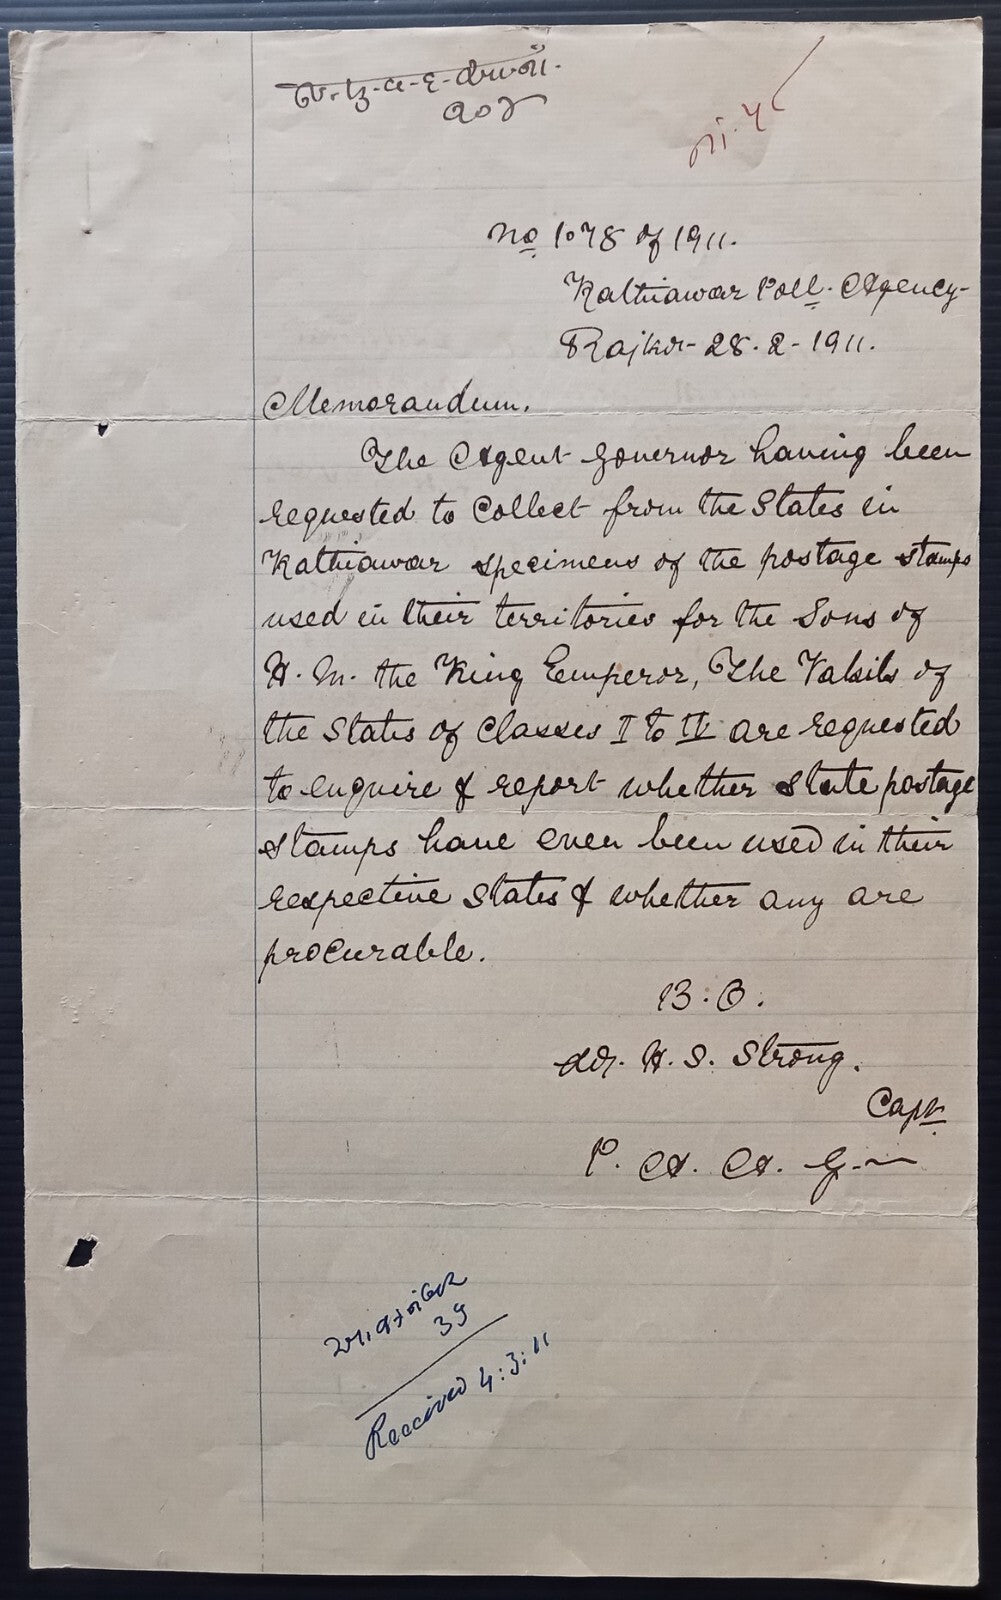 ૨૦૪
No 1078 of 1911.
Kathiawar Poll. Agency-
Rajkot- 28.2-1911.
Memorandum.
The Agent Governor having been
requested to Collect from the States in
Kathiawar specimens of the postage stamps
used in their territories for the Sons of
H. M. the King Emperor, The Vakils of
the States of Classes II to IV are requested
to enquire & report whether state postage
stamps have ever been used in their
respective States & whether any are
procurable.
B.O.
Sd. H. S. Strong.
Capt
P. A. A. G.
39
Received 4:3:11